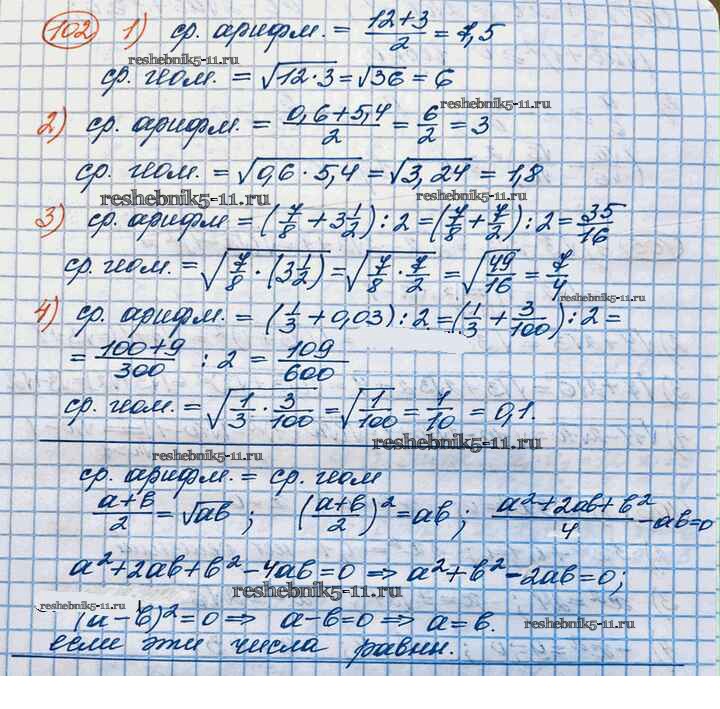 102 1) ср. арифм. = (12+3)/2 = 7,5
reshebnik5-11.ru
ср. геом. = √(12·3) = √36 = 6
reshebnik5-11.ru
2) ср. арифм. = (0,6+5,4)/2 = 6/2 = 3
ср. геом. = √(0,6·5,4) = √(3,24) = 1,8
reshebnik5-11.ru reshebnik5-11.ru
3) ср. арифм = (7/8 + 3 1/2) : 2 = (7/8 + 7/2) : 2 = 35/16
ср. геом. = √(7/8 · (3 1/2)) = √(7/8 · 7/2) = √(49/16) = 7/4
reshebnik5-11.ru
4) ср. арифм. = (1/3 + 0,03) : 2 = (1/3 + 3/100) : 2 =
= (100+9)/300 : 2 = 109/600
ср. геом. = √(1/3 · 3/100) = √(1/100) = 1/10 = 0,1.
reshebnik5-11.ru
reshebnik5-11.ru
ср. арифм. = ср. геом
(a+b)/2 = √ab ; ((a+b)/2)² = ab ; (a²+2ab+b²)/4 - ab=0
a²+2ab+b²-4ab=0 ⇒ a²+b²-2ab=0;
reshebnik5-11.ru
reshebnik5-11.ru reshebnik5-11.ru
(a-b)²=0 ⇒ a-b=0 ⇒ a=b.
если эти числа равны.